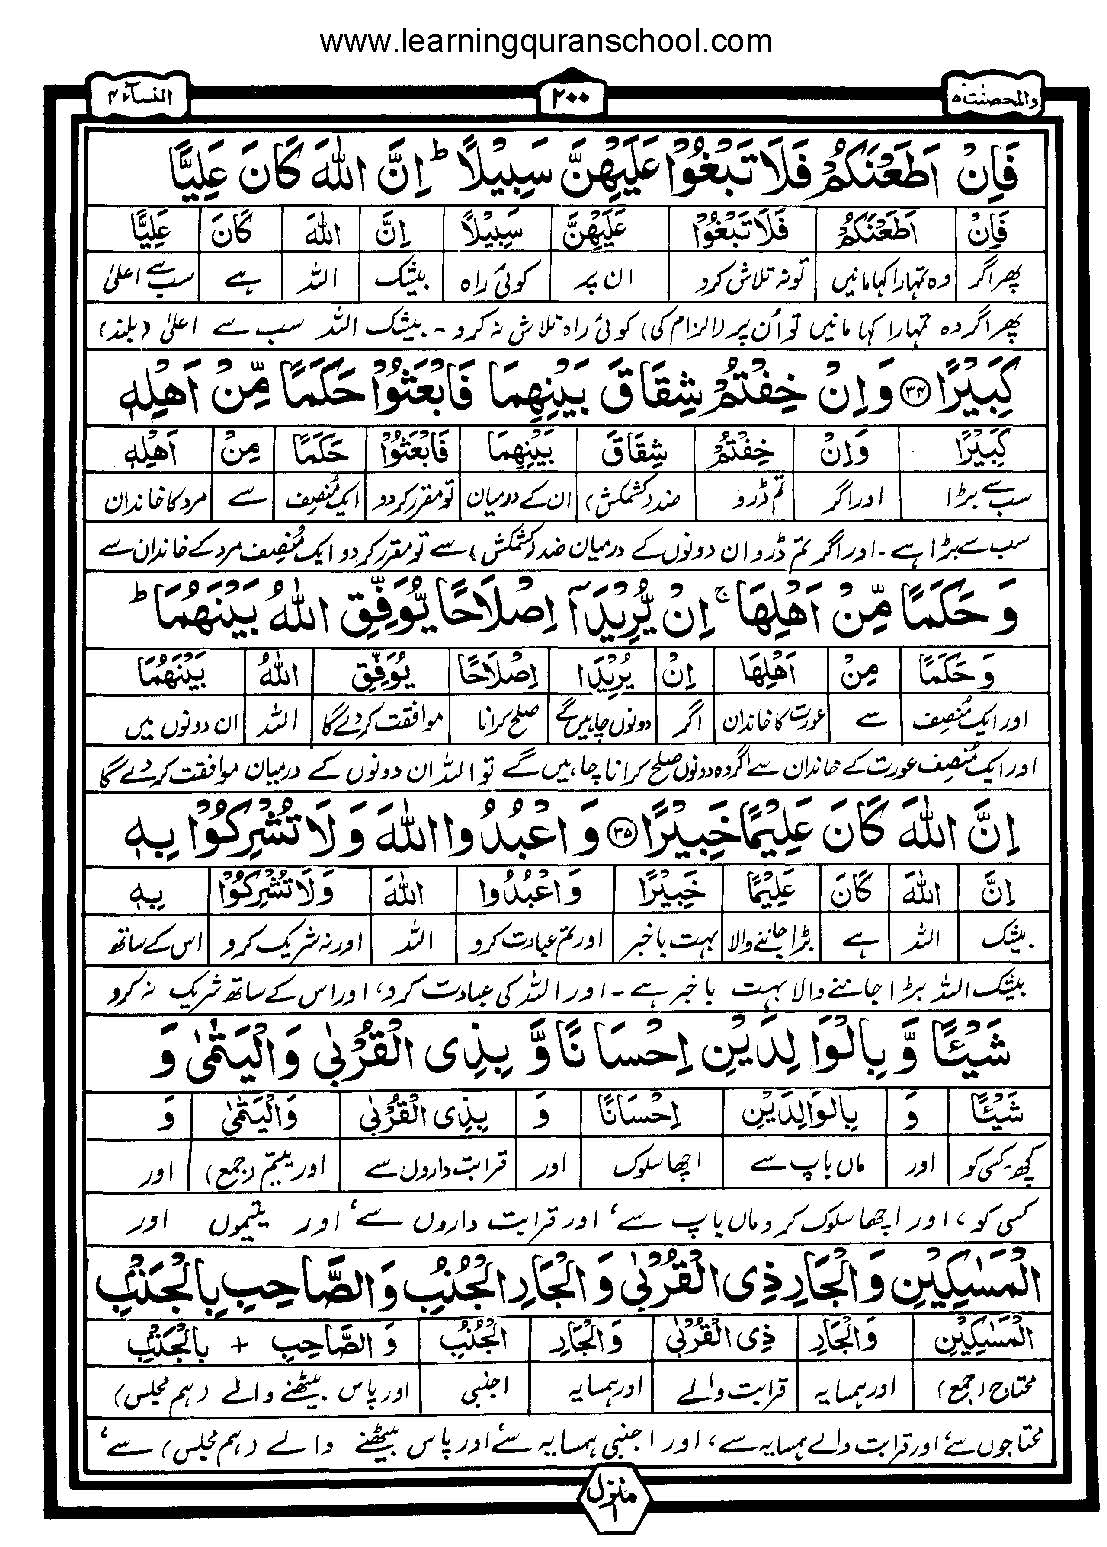 www.learningquranschool.com
والمحصنت ۵ ۲۰۰ النسآء ۴
فَاِنْ اَطَعْنَكُمْ فَلَا تَبْغُوْا عَلَيْهِنَّ سَبِيْلًا ؕ اِنَّ اللّٰهَ كَانَ عَلِيًّا
فَاِنْ اَطَعْنَكُمْ فَلَا تَبْغُوْا عَلَيْهِنَّ سَبِيْلًا اِنَّ اللّٰهَ كَانَ عَلِيًّا
پھر اگر وہ تمہارا کہا مانیں تو نہ تلاش کرو ان پر کوئی راہ بیشک اللہ ہے سب سے اعلیٰ
پھر اگر وہ تمہارا کہا مانیں تو اُن پر (الزام کی) کوئی راہ تلاش نہ کرو ۔ بیشک اللہ سب سے اعلیٰ (بلند)
كَبِيْرًا ۳۴ وَاِنْ خِفْتُمْ شِقَاقَ بَيْنِهِمَا فَابْعَثُوْا حَكَمًا مِّنْ اَهْلِهٖ
كَبِيْرًا وَاِنْ خِفْتُمْ شِقَاقَ بَيْنِهِمَا فَابْعَثُوْا حَكَمًا مِنْ اَهْلِهٖ
سب سے بڑا اور اگر تم ڈرو ضد (کشمکش) ان کے درمیان تو مقرر کردو ایک مُنصِف سے مرد کا خاندان
سب سے بڑا ہے ۔ اور اگر تم ڈرو ان دونوں کے درمیان ضد (کشمکش) سے تو مقرر کردو ایک مُنصِف مرد کے خاندان سے
وَحَكَمًا مِّنْ اَهْلِهَا ۚ اِنْ يُّرِيْدَآ اِصْلَاحًا يُّوَفِّقِ اللّٰهُ بَيْنَهُمَا ؕ
وَحَكَمًا مِنْ اَهْلِهَا اِنْ يُرِيْدَا اِصْلَاحًا يُوَفِّقِ اللّٰهُ بَيْنَهُمَا
اور ایک مُنصِف سے عورت کا خاندان اگر دونوں چاہیں گے صلح کرانا موافقت کردے گا اللہ ان دونوں میں
اور ایک مُنصِف عورت کے خاندان سے اگر وہ دونوں صلح کرانا چاہیں گے تو اللہ ان دونوں کے درمیان موافقت کردے گا
اِنَّ اللّٰهَ كَانَ عَلِيْمًا خَبِيْرًا ۳۵ وَاعْبُدُوا اللّٰهَ وَلَا تُشْرِكُوْا بِهٖ
اِنَّ اللّٰهَ كَانَ عَلِيْمًا خَبِيْرًا وَاعْبُدُوا اللّٰهَ وَلَا تُشْرِكُوْا بِهٖ
بیشک اللہ ہے بڑا جاننے والا بہت باخبر اور تم عبادت کرو اللہ اور نہ شریک کرو اس کے ساتھ
بیشک اللہ بڑا جاننے والا بہت باخبر ہے ۔ اور اللہ کی عبادت کرو، اور اس کے ساتھ شریک نہ کرو
شَيْـًٔا وَّ بِالْوَالِدَيْنِ اِحْسَانًا وَّ بِذِى الْقُرْبٰى وَالْيَتٰمٰى وَ
شَيْـًٔا وَ بِالْوَالِدَيْنِ اِحْسَانًا وَ بِذِى الْقُرْبٰى وَالْيَتٰمٰى وَ
کچھ۔کسی کو اور ماں باپ سے اچھا سلوک اور قرابت داروں سے اور یتیم (جمع) اور
کسی کو، اور اچھا سلوک کرو ماں باپ سے، اور قرابت داروں سے، اور یتیموں اور
الْمَسٰكِيْنِ وَالْجَارِ ذِى الْقُرْبٰى وَالْجَارِ الْجُنُبِ وَالصَّاحِبِ بِالْجَنْۢبِ
الْمَسٰكِيْنِ وَالْجَارِ ذِى الْقُرْبٰى وَالْجَارِ الْجُنُبِ وَالصَّاحِبِ + بِالْجَنْۢبِ
محتاج (جمع) اور ہمسایہ قرابت والے اور ہمسایہ اجنبی اور پاس بیٹھنے والے (ہم مجلس)
محتاجوں سے، اور قرابت والے ہمسایہ سے، اور اجنبی ہمسایہ سے، اور پاس بیٹھنے والے (ہم مجلس) سے،
منزل ۱